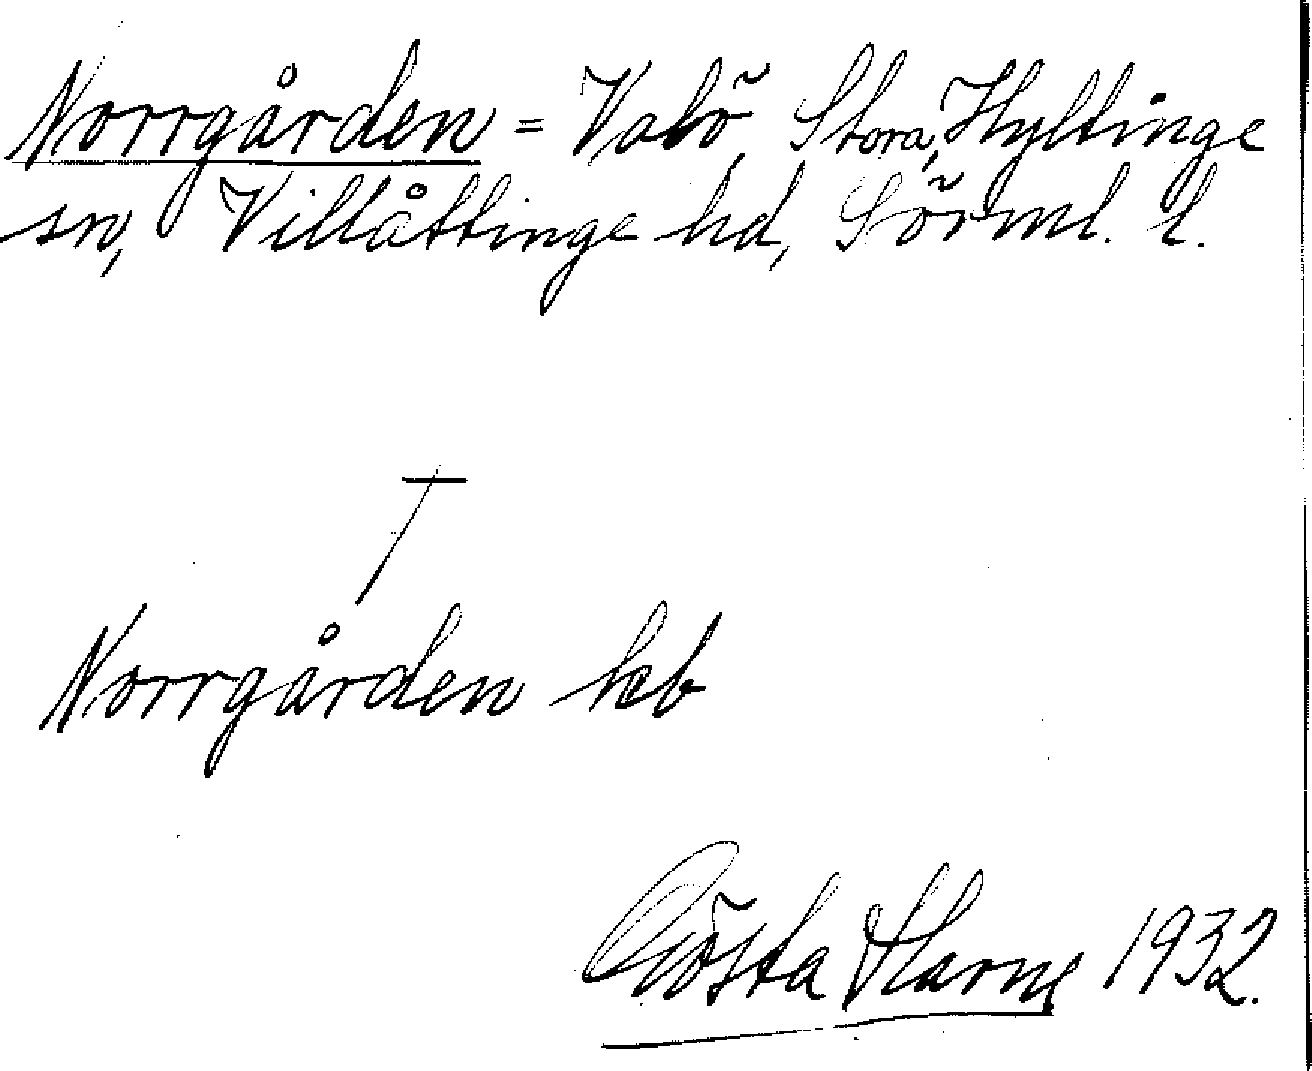 Norrgården = Valö, Stora, Hyltinge
sn, Villåttinge hd, Sörml. l.
†
Norrgården hcb
Gösta Harne 1932.